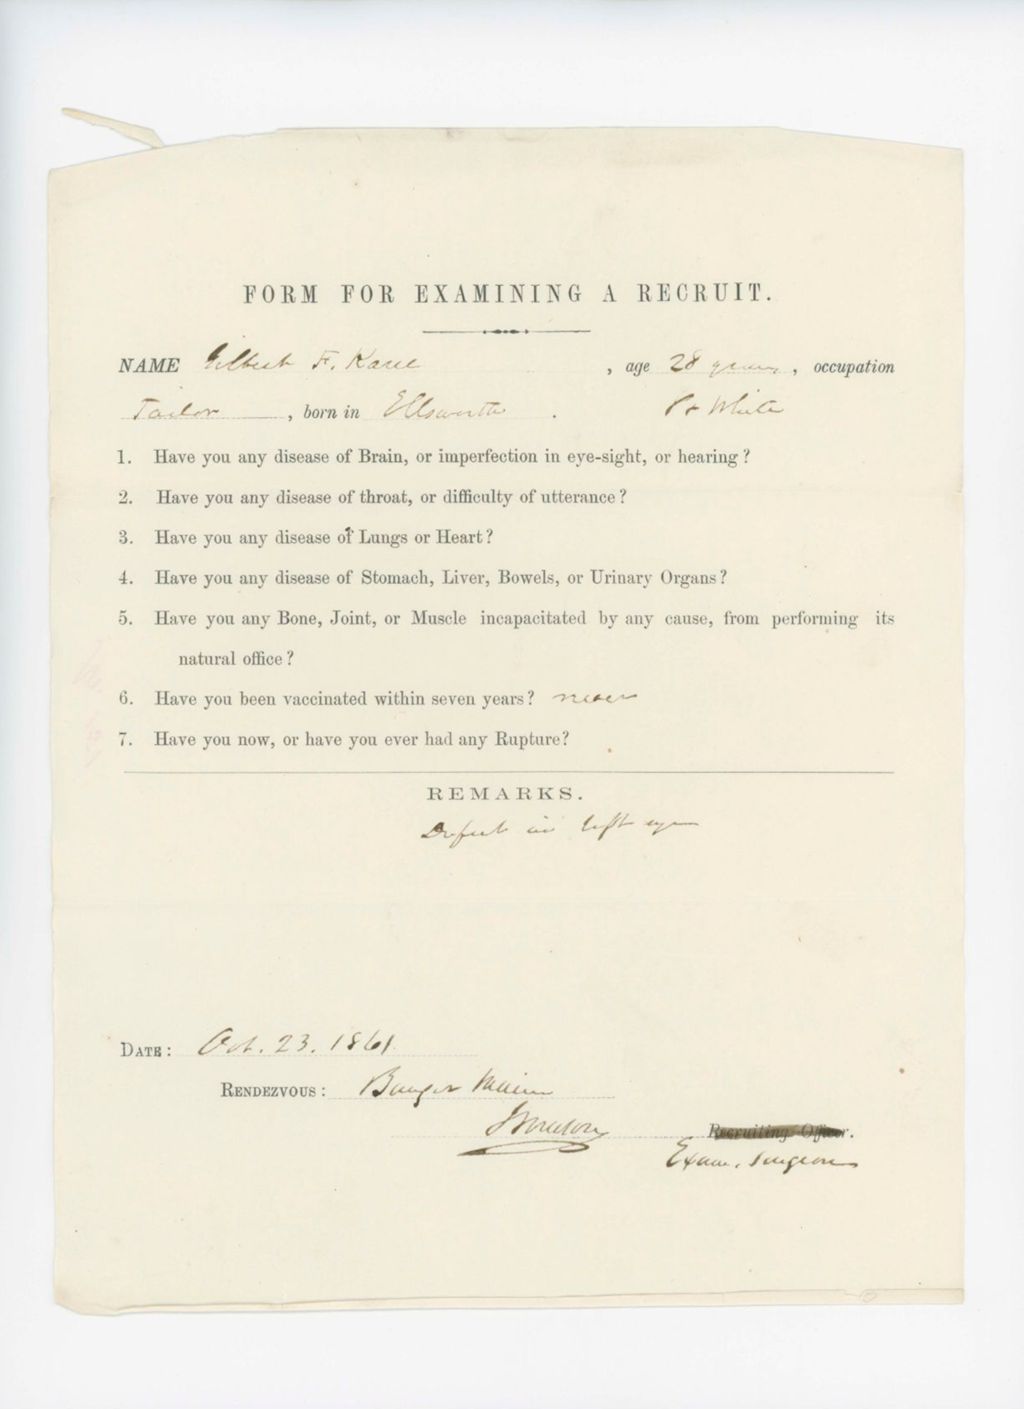 FORM FOR EXAMINING A RECRUIT.
NAME Gilbert F. Kane , age 28 years , occupation
Tailor , born in Ellsworth . White
1. Have you any disease of Brain, or imperfection in eye-sight, or hearing?
2. Have you any disease of throat, or difficulty of utterance?
3. Have you any disease of Lungs or Heart?
4. Have you any disease of Stomach, Liver, Bowels, or Urinary Organs?
5. Have you any Bone, Joint, or Muscle incapacitated by any cause, from performing its
natural office?
6. Have you been vaccinated within seven years? never
7. Have you now, or have you ever had any Rupture?
REMARKS.
Defect in left eye
DATE: Oct. 23. 1861
RENDEZVOUS: Bangor Maine
Recruiting Officer.
Exam. Surgeon